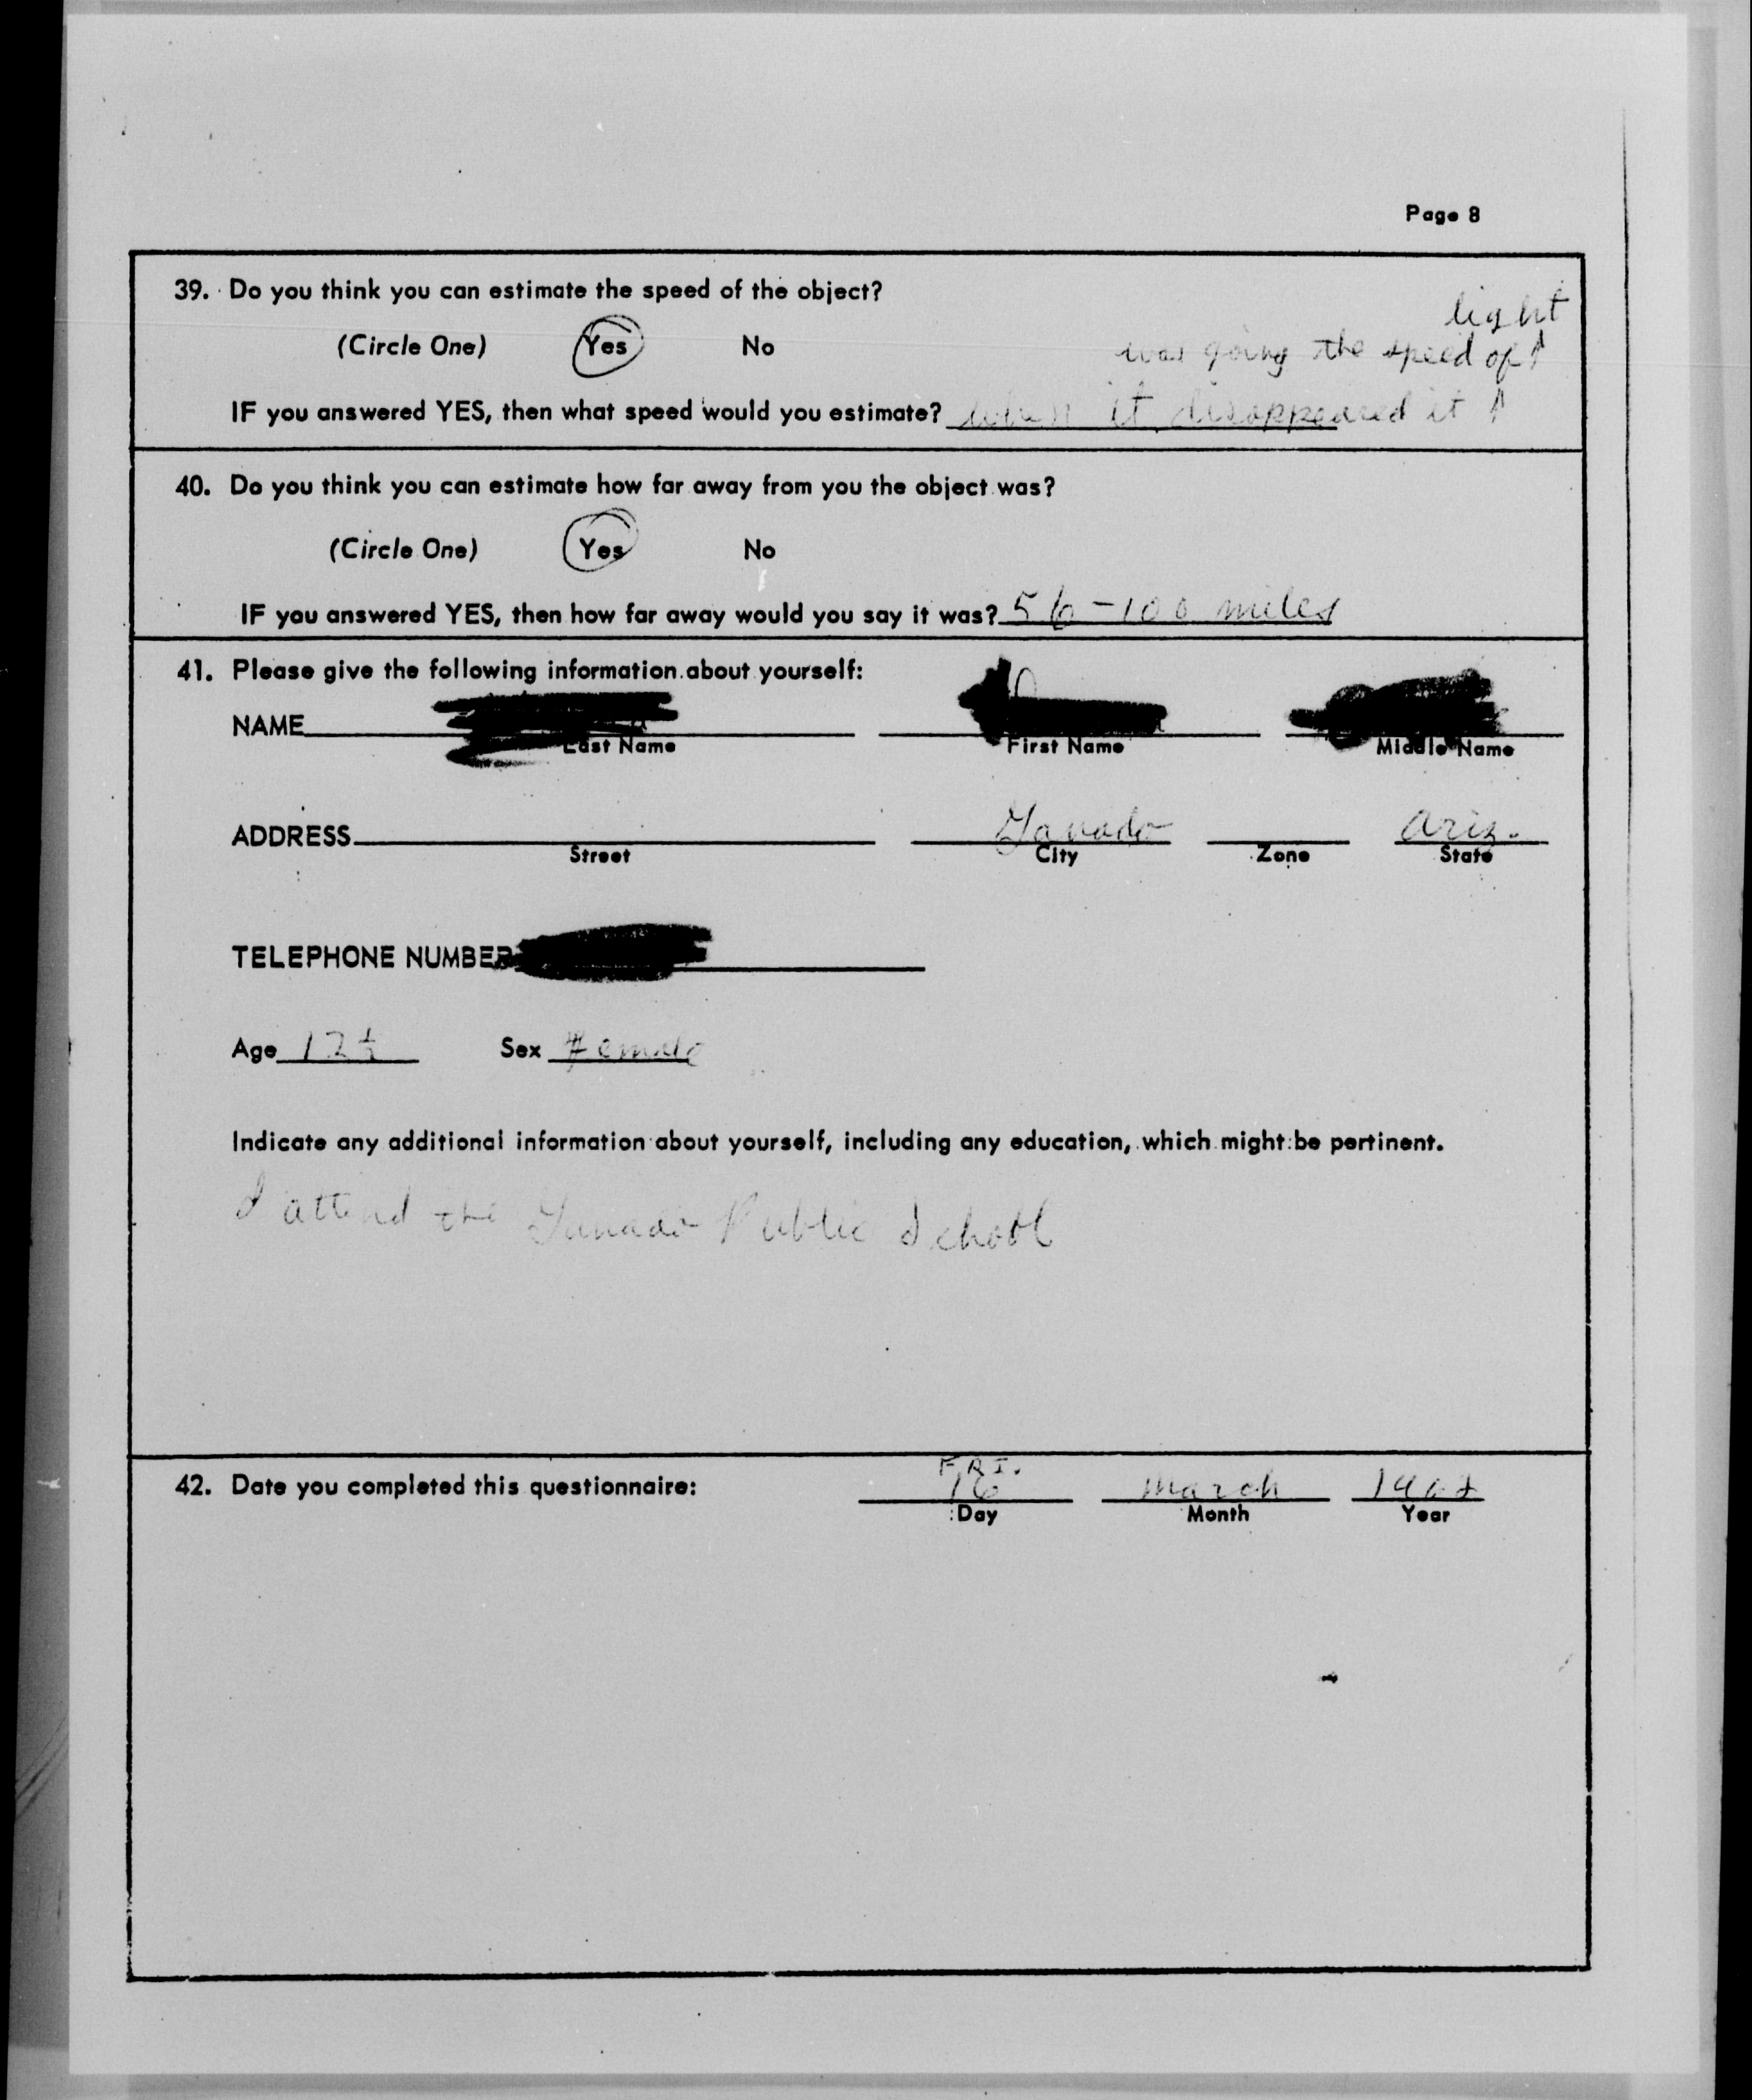 Page 8
39. Do you think you can estimate the speed of the object?
light
(Circle One) Yes No was going the speed of
IF you answered YES, then what speed would you estimate? when it disappeared it
40. Do you think you can estimate how far away from you the object was?
(Circle One) Yes No
IF you answered YES, then how far away would you say it was? 56-100 miles
41. Please give the following information about yourself:
NAME
Last Name First Name Middle Name
ADDRESS Ganado Ariz.
Street City Zone State
TELEPHONE NUMBER
Age 12½ Sex Female
Indicate any additional information about yourself, including any education, which might be pertinent.
I attend the Ganado Public School
FRI.
42. Date you completed this questionnaire: 16 March 1962
Day Month Year